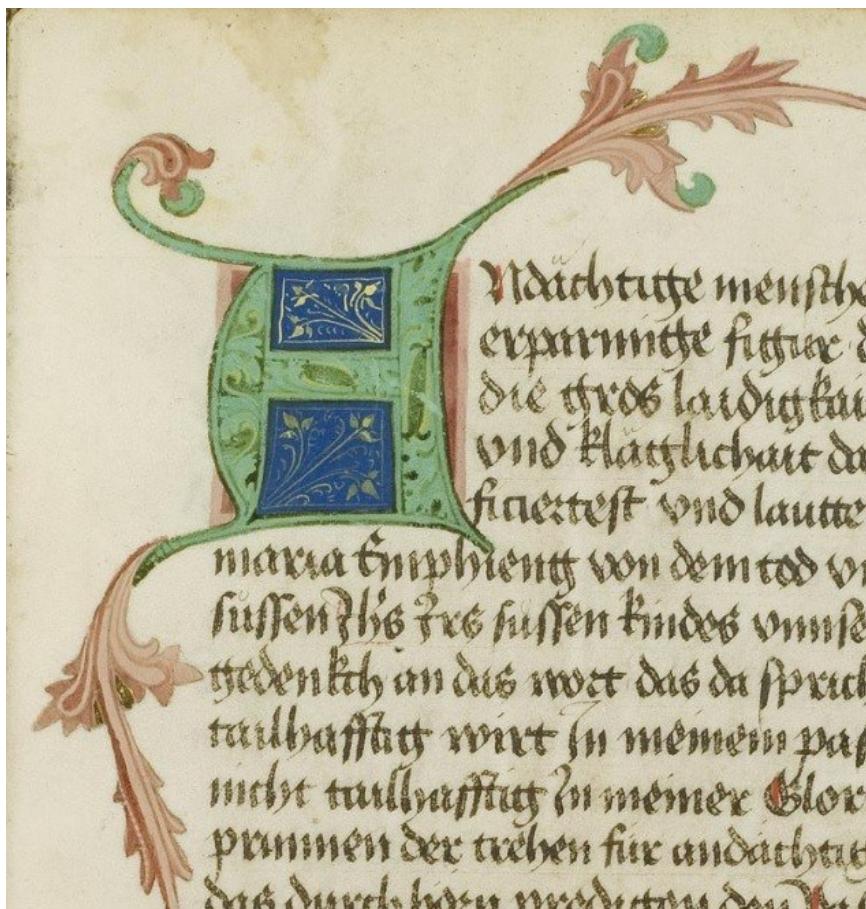 ANdächtige mensche
erparmige figur d
die gros laidigkai
vnd kläglichait da
ficiertest vnd lautte
maria Emphieng von dem tod vn
süssen Jhs Irs süssen kindes vnnse
gedenkch an das wort das da sprich
tailhafftig wirt In meinem pas
nicht tailhafftig In meiner Glor
prunnen der trehen für andächtig
das durch predigten den